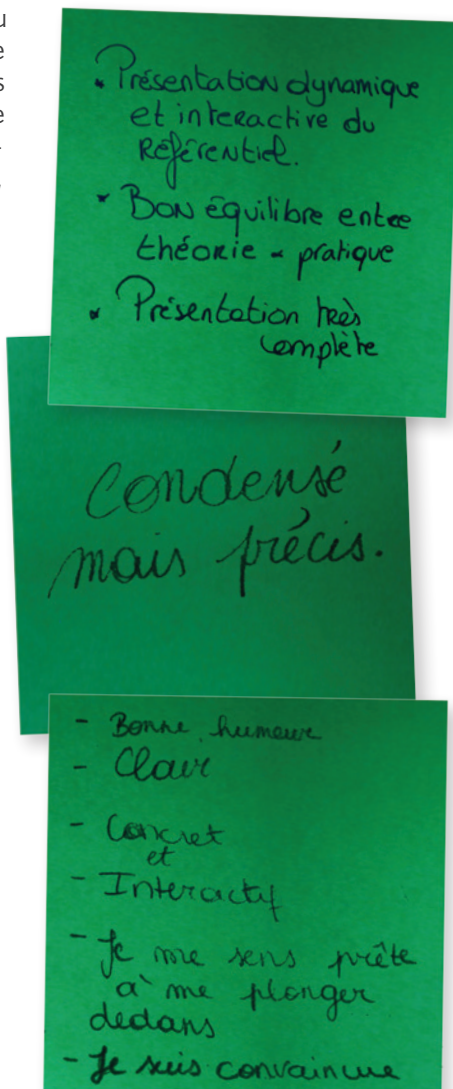 u
e
s
e
-
,
* Présentation dynamique
et interactive du
Référentiel.
* Bon équilibre entre
théorie - pratique
* Présentation très
complète
Condensé
mais précis.
- Bonne humeur
- Clair
- Concret
et
- Interactif
- Je me sens prête
à me plonger
dedans
- Je suis convaincue